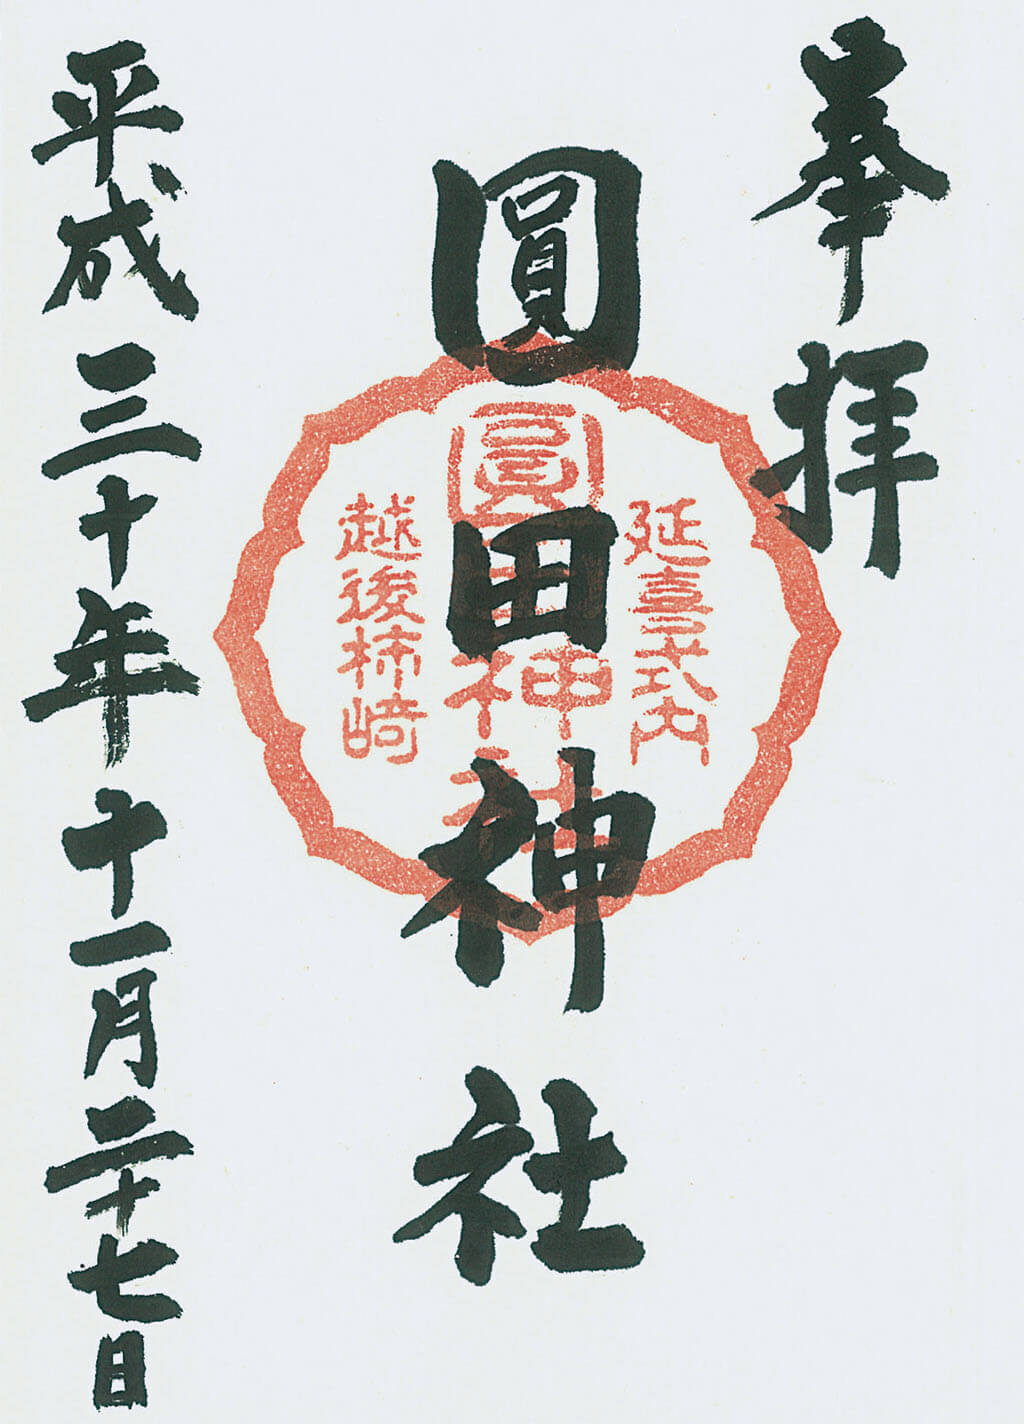 奉拝
延喜式内
圓田神社
圓田神社
越後柿崎
平成三十年十一月二十七日